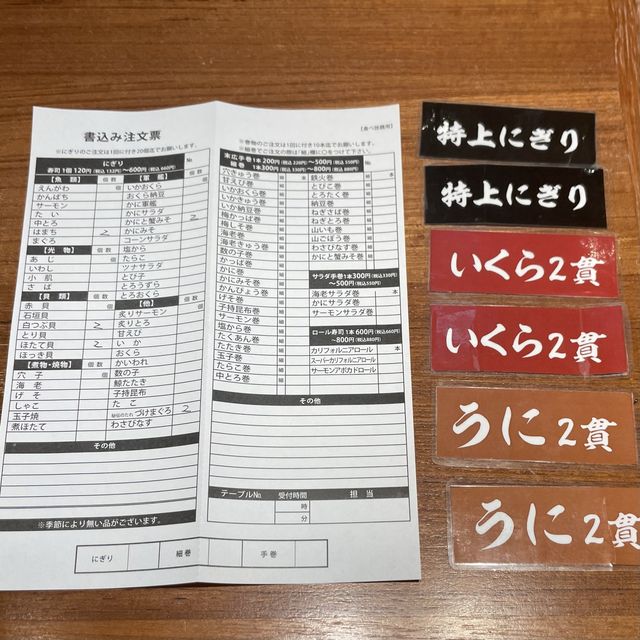 書込み注文票
【食べ放題用】
※にぎりのご注文は1回に付き20個迄でお願いします。
にぎり
寿司1個 120円(税込 132円)~600円(税込 660円)
№
【魚類】 個数 【軍艦】 個数
えんがわ いかおくら
かんぱち おくら納豆
サーモン かに軍艦
たい かにサラダ
中とろ かにと蟹みそ 2
はまち 2 かにみそ
まぐろ コーンサラダ
【光物】 個数 塩から
あじ たらこ
いわし ツナサラダ
小肌 とろうずら
さば とろおくら
【貝類】 個数 【他】 個数
赤貝 炙りサーモン
石垣貝 炙りとろ
白つぶ貝 2 甘えび
とり貝 いか
ほたて貝 2 おくら
ほっき貝 かいわれ
【煮物・焼物】 個数 数の子
穴子 鯨たたき
海老 子持昆布
げそ たこ
しゃこ 秘伝のたれ づけまぐろ 2
玉子焼 わさびなす
煮ほたて
その他
※季節により無い品がございます。
※巻物のご注文は1回に付き10本迄でお願いします。
※細巻でご注文の際は「細」欄に〇をつけて下さい。
末広手巻 1本 200円(税込 220円)~500円(税込 550円)
細巻 1本 300円(税込 330円)~800円(税込 880円)
№
穴きゅう巻 細 鉄火巻 細
甘えび巻 細 とびこ巻 細
いかおくら巻 細 とろたく巻 細
いかきゅう巻 細 納豆巻 細
いか納豆巻 細 ねぎさば巻 細
梅かっぱ巻 細 ねぎとろ巻 細
梅しそ巻 細 山いも巻 細
海老巻 細 山ごぼう巻 細
海老きゅう巻 細 わさびなす巻 細
数の子巻 細 かにと蟹みそ巻 細
かっぱ巻 細
かに巻 細 サラダ手巻 1本 300円(税込 330円)
かにみそ巻 細 ~500円(税込 550円)
かんぴょう巻 細 海老サラダ巻 本
げそ巻 細 かにサラダ巻
子持昆布巻 細 サーモンサラダ巻
サーモン巻 細
塩から巻 細 ロール寿司 1本 600円(税込660円)
たくあん巻 細 ~800円(税込880円)
たたき巻 細 カリフォルニアロール 本
玉子巻 細 スーパーカリフォルニアロール
たらこ巻 細 サーモンアボカドロール
中とろ巻 細
その他
テーブル№ 受付時間 担当
時
分
にぎり 細巻 手巻
特上にぎり
特上にぎり
いくら2貫
いくら2貫
うに2貫
うに2貫